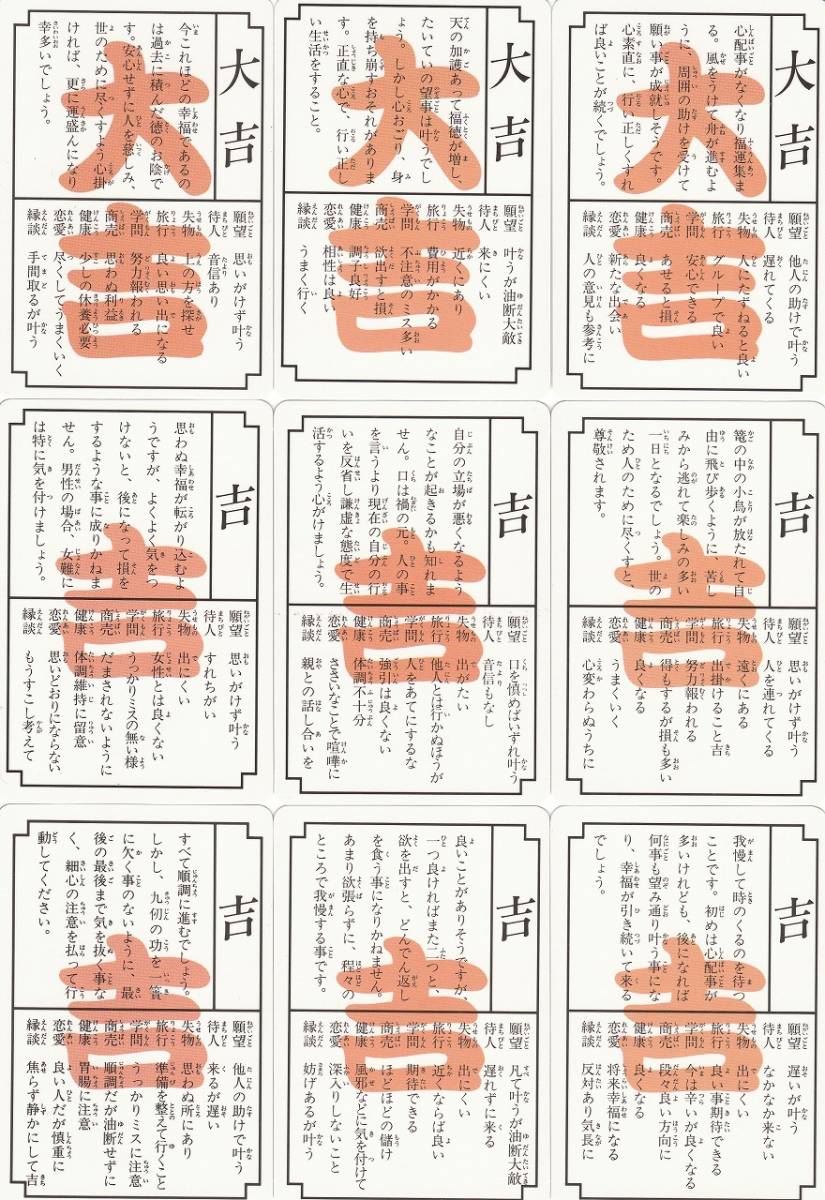 大吉
心配事がなくなり福運集ま
る。風をうけて舟が進むよ
うに、周囲の助けを受けて
願い事が成就しそうです。
心素直に、行い正しくすれ
ば良いことが続くでしょう。
願望 他人の助けで叶う
待人 遅れてくる
失物 人にたずねると良い
旅行 グループで良い
学問 安心できる
商売 あせると損
健康 良くなる
恋愛 新たな出会い
縁談 人の意見も参考に
大吉
天の加護あって福徳が増し、
たいていの望事は叶うでし
ょう。しかし心おごり、身
を持ち崩すおそれがありま
す。正直な心で、行い正し
い生活をすること。
願望 叶うが油断大敵
待人 来にくい
失物 近くにあり
旅行 費用がかかる
学問 不注意のミス多い
商売 欲出すと損
健康 調子良好
恋愛 相性は良い
縁談 うまく行く
大吉
今これほどの幸福であるの
は過去に積んだ徳のお陰で
す。安心せずに人を慈しみ、
世のために尽くすよう心掛
ければ、更に運盛んになり
幸多いでしょう。
願望 思いがけず叶う
待人 音信あり
失物 上の方を探せ
旅行 良い思い出になる
学問 努力報われる
商売 思わぬ利益
健康 少しの休養必要
恋愛 尽くしてうまくいく
縁談 手間取るが叶う
吉
篭の中の小鳥が放たれて自
由に飛び歩くように、苦し
みから逃れて楽しみの多い
一日となるでしょう。世の
ため人のために尽くすと、
尊敬されます。
願望 思いがけず叶う
待人 人を連れてくる
失物 遠くにある
旅行 出掛けること吉
学問 努力報われる
商売 得もするが損も多い
健康 良くなる
恋愛 うまくいく
縁談 心変わらぬうちに
吉
自分の立場が悪くなるよう
なことが起きるかも知れま
せん。口は禍の元。人の事
を言うより現在の自分の行
いを反省し謙虚な態度で生
活するよう心がけましょう。
願望 口を慎めばいずれ叶う
待人 音信もなし
失物 出がたい
旅行 他人とは行かぬほうが
学問 人をあてにするな
商売 強引は良くない
健康 体調不十分
恋愛 ささいなことで喧嘩に
縁談 親との話し合いを
吉
思わぬ幸福が転がり込むよ
うですが、よくよく気をつ
けないと、後になって損を
するような事に成りかねま
せん。男性の場合、女難に
は特に気を付けましょう。
願望 思いがけず叶う
待人 すれちがい
失物 出にくい
旅行 女性とは良くない
学問 うっかりミスの無い様
商売 だまされないように
健康 体調維持に留意
恋愛 思いどおりにならない
縁談 もうすこし考えて
吉
我慢して時のくるのを待つ
ことです。初めは心配事が
多いけれども、後になれば
何事も望み通り叶う事にな
り、幸福が引き続いて来る
でしょう。
願望 遅いが叶う
待人 なかなか来ない
失物 出にくい
旅行 良い事期待できる
学問 今は辛いが良くなる
商売 段々良い方向に
健康 良くなる
恋愛 将来幸福になる
縁談 反対あり気長に
吉
良いことがありそうですが、
一つ良ければまた二つと、
欲を出すと、どんでん返し
を食う事になりかねません。
あまり欲張らずに、程々の
ところで我慢する事です。
願望 凡て叶うが油断大敵
待人 遅れずに来る
失物 出にくい
旅行 近くならば良い
学問 期待できる
商売 ほどほどの儲け
健康 風邪などに気を付けて
恋愛 深入りしないこと
縁談 妨げあるが叶う
吉
すべて順調に進むでしょう。
しかし、九仞の功を一簣
に欠く事のないように、最
後の最後まで気を抜く事な
く、細心の注意を払って行
動してください。
願望 他人の助けで叶う
待人 来るが遅い
失物 思わぬ所にあり
旅行 準備を整えて行くこと
学問 うっかりミスに注意
商売 順調だが油断せずに
健康 胃腸に注意
恋愛 良い人だが慎重に
縁談 焦らず静かにして吉